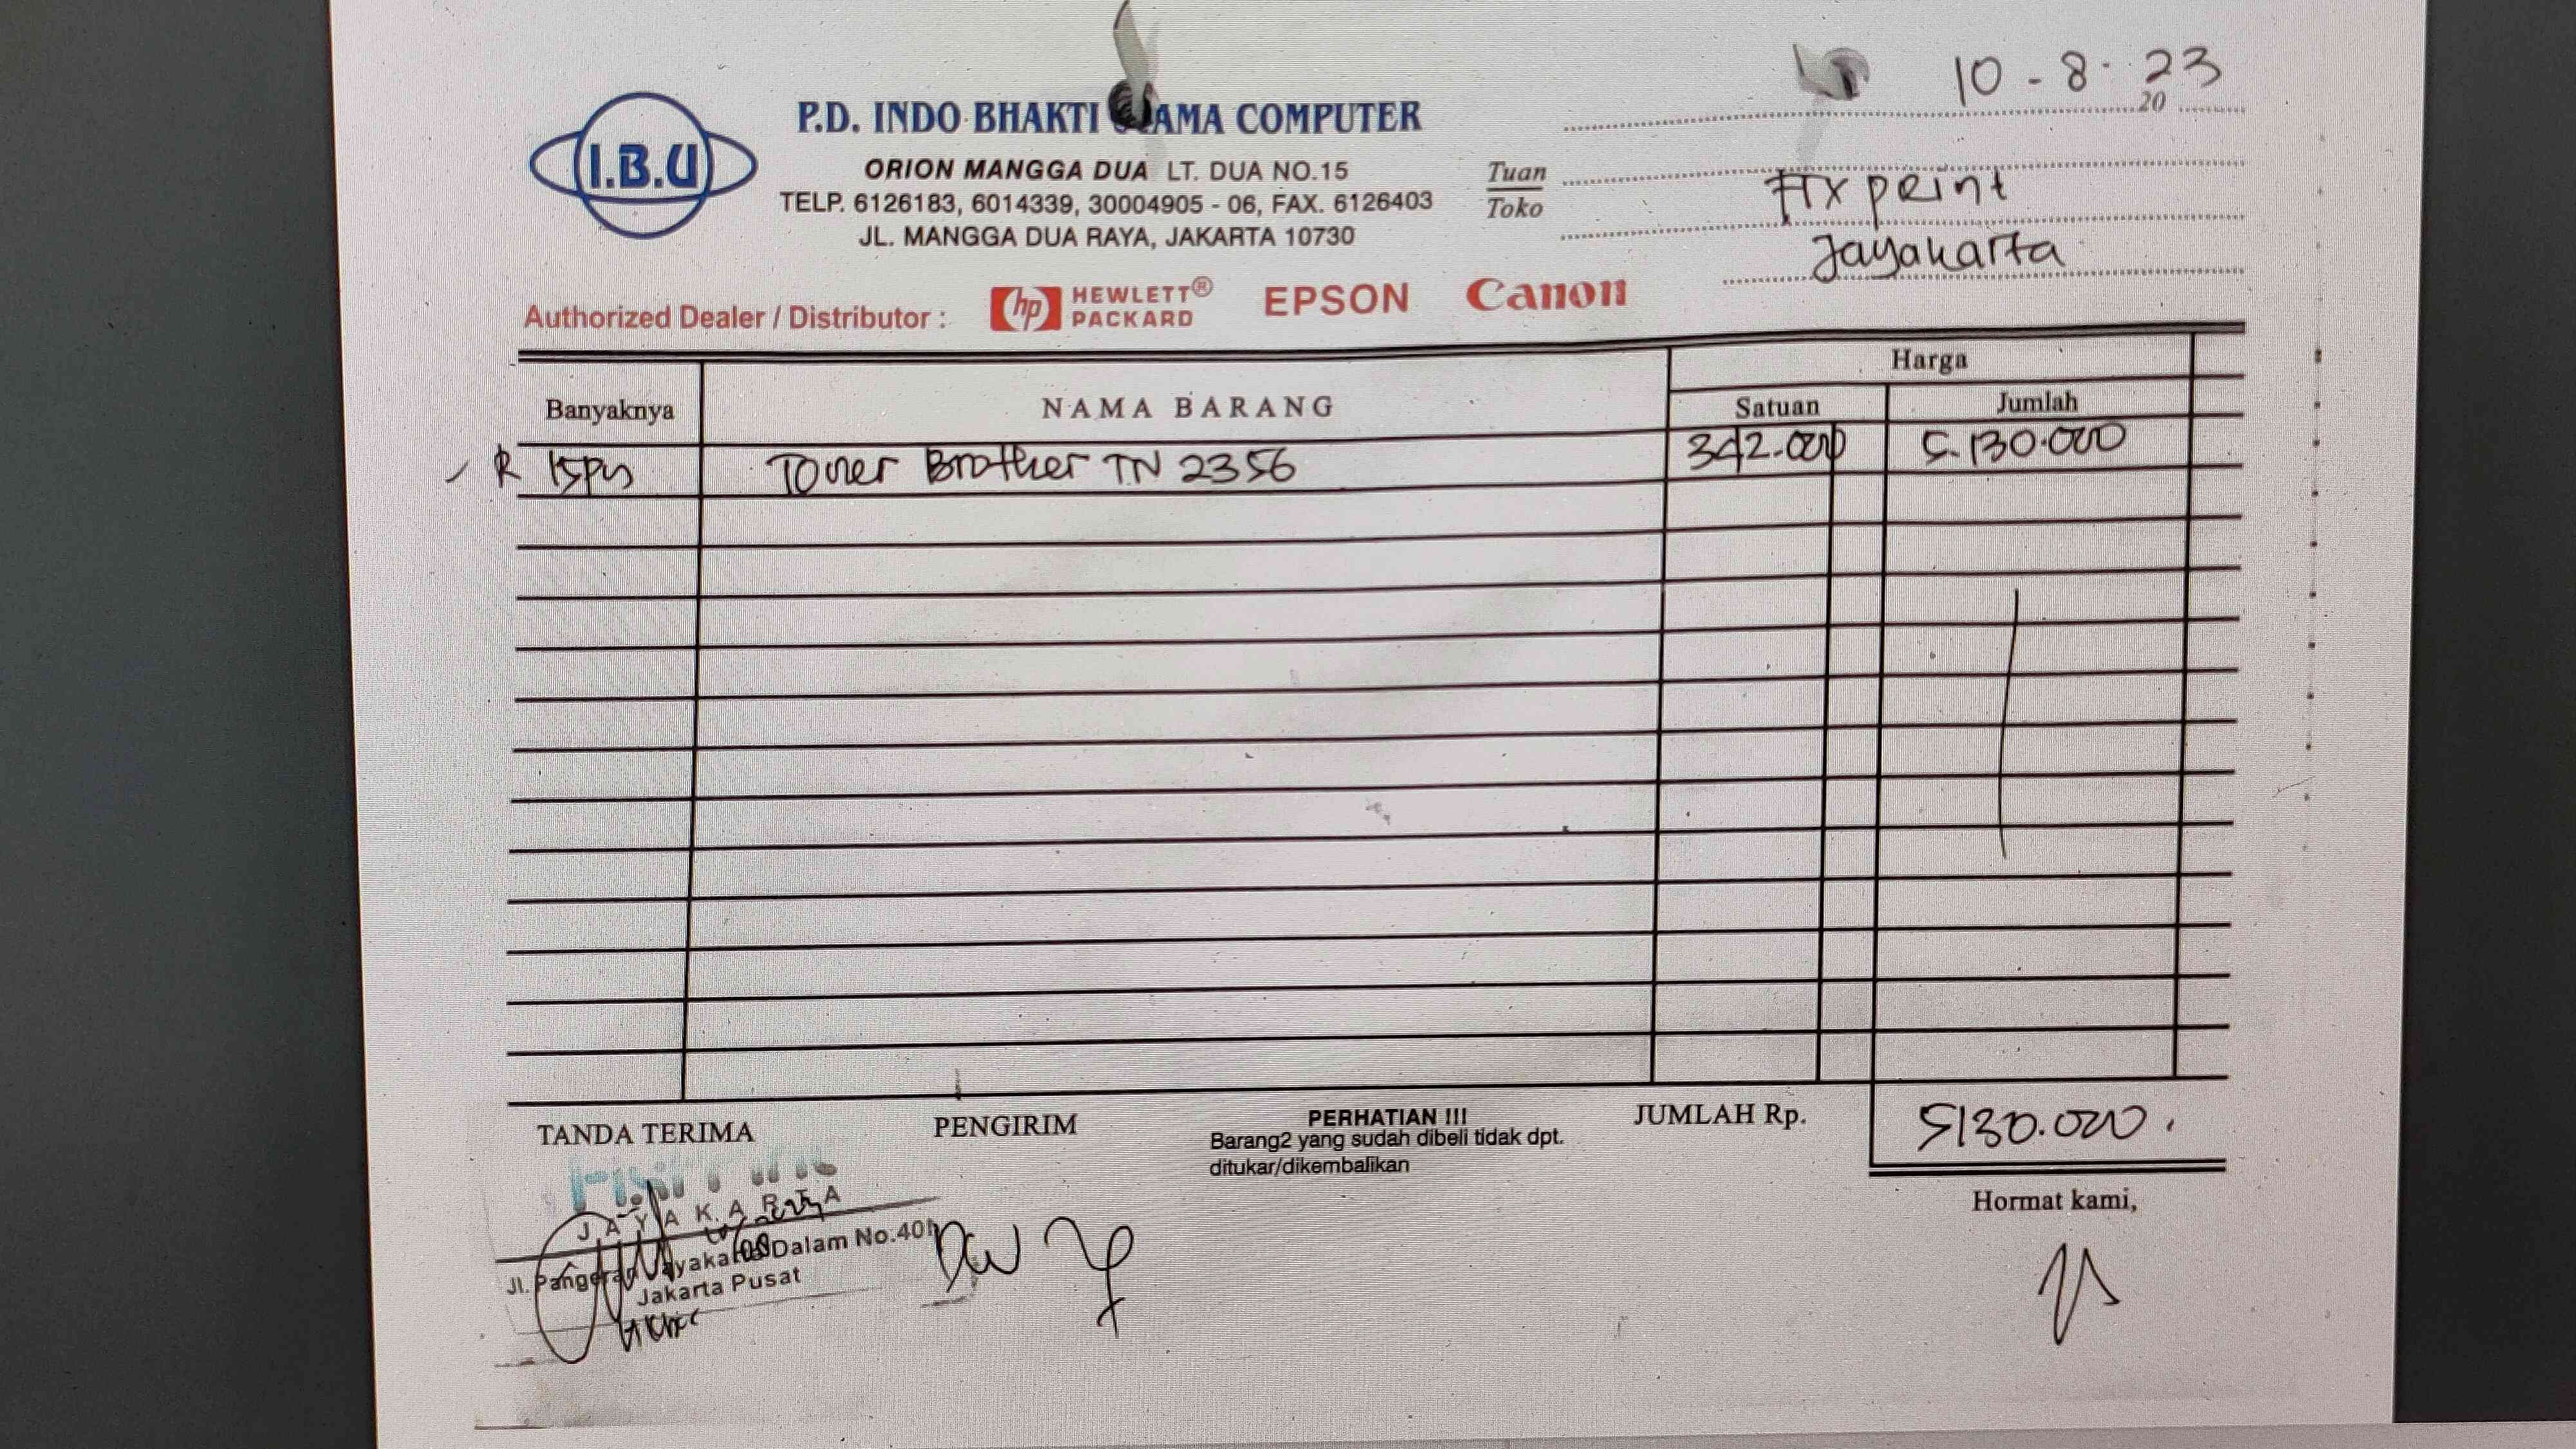 10-8-23
20
I.B.U
P.D. INDO BHAKTI AMA COMPUTER
ORION MANGGA DUA LT. DUA NO.15
TELP. 6126183, 6014339, 30004905 - 06, FAX. 6126403
JL. MANGGA DUA RAYA, JAKARTA 10730
Tuan
Toko
print
Jayakarta
Authorized Dealer / Distributor : hp HEWLETT® PACKARD EPSON Canon
Banyaknya NAMA BARANG Harga
Satuan Jumlah
15 pcs Toner Brother TN 2356 342.000 5.130.000
TANDA TERIMA PENGIRIM PERHATIAN !!! JUMLAH Rp. 5130.000.
Barang2 yang sudah dibeli tidak dpt.
ditukar/dikembalikan
Hormat kami,
JAYAKARTA
Jl. Pangeran Jayakarta Dalam No.40
Jakarta Pusat